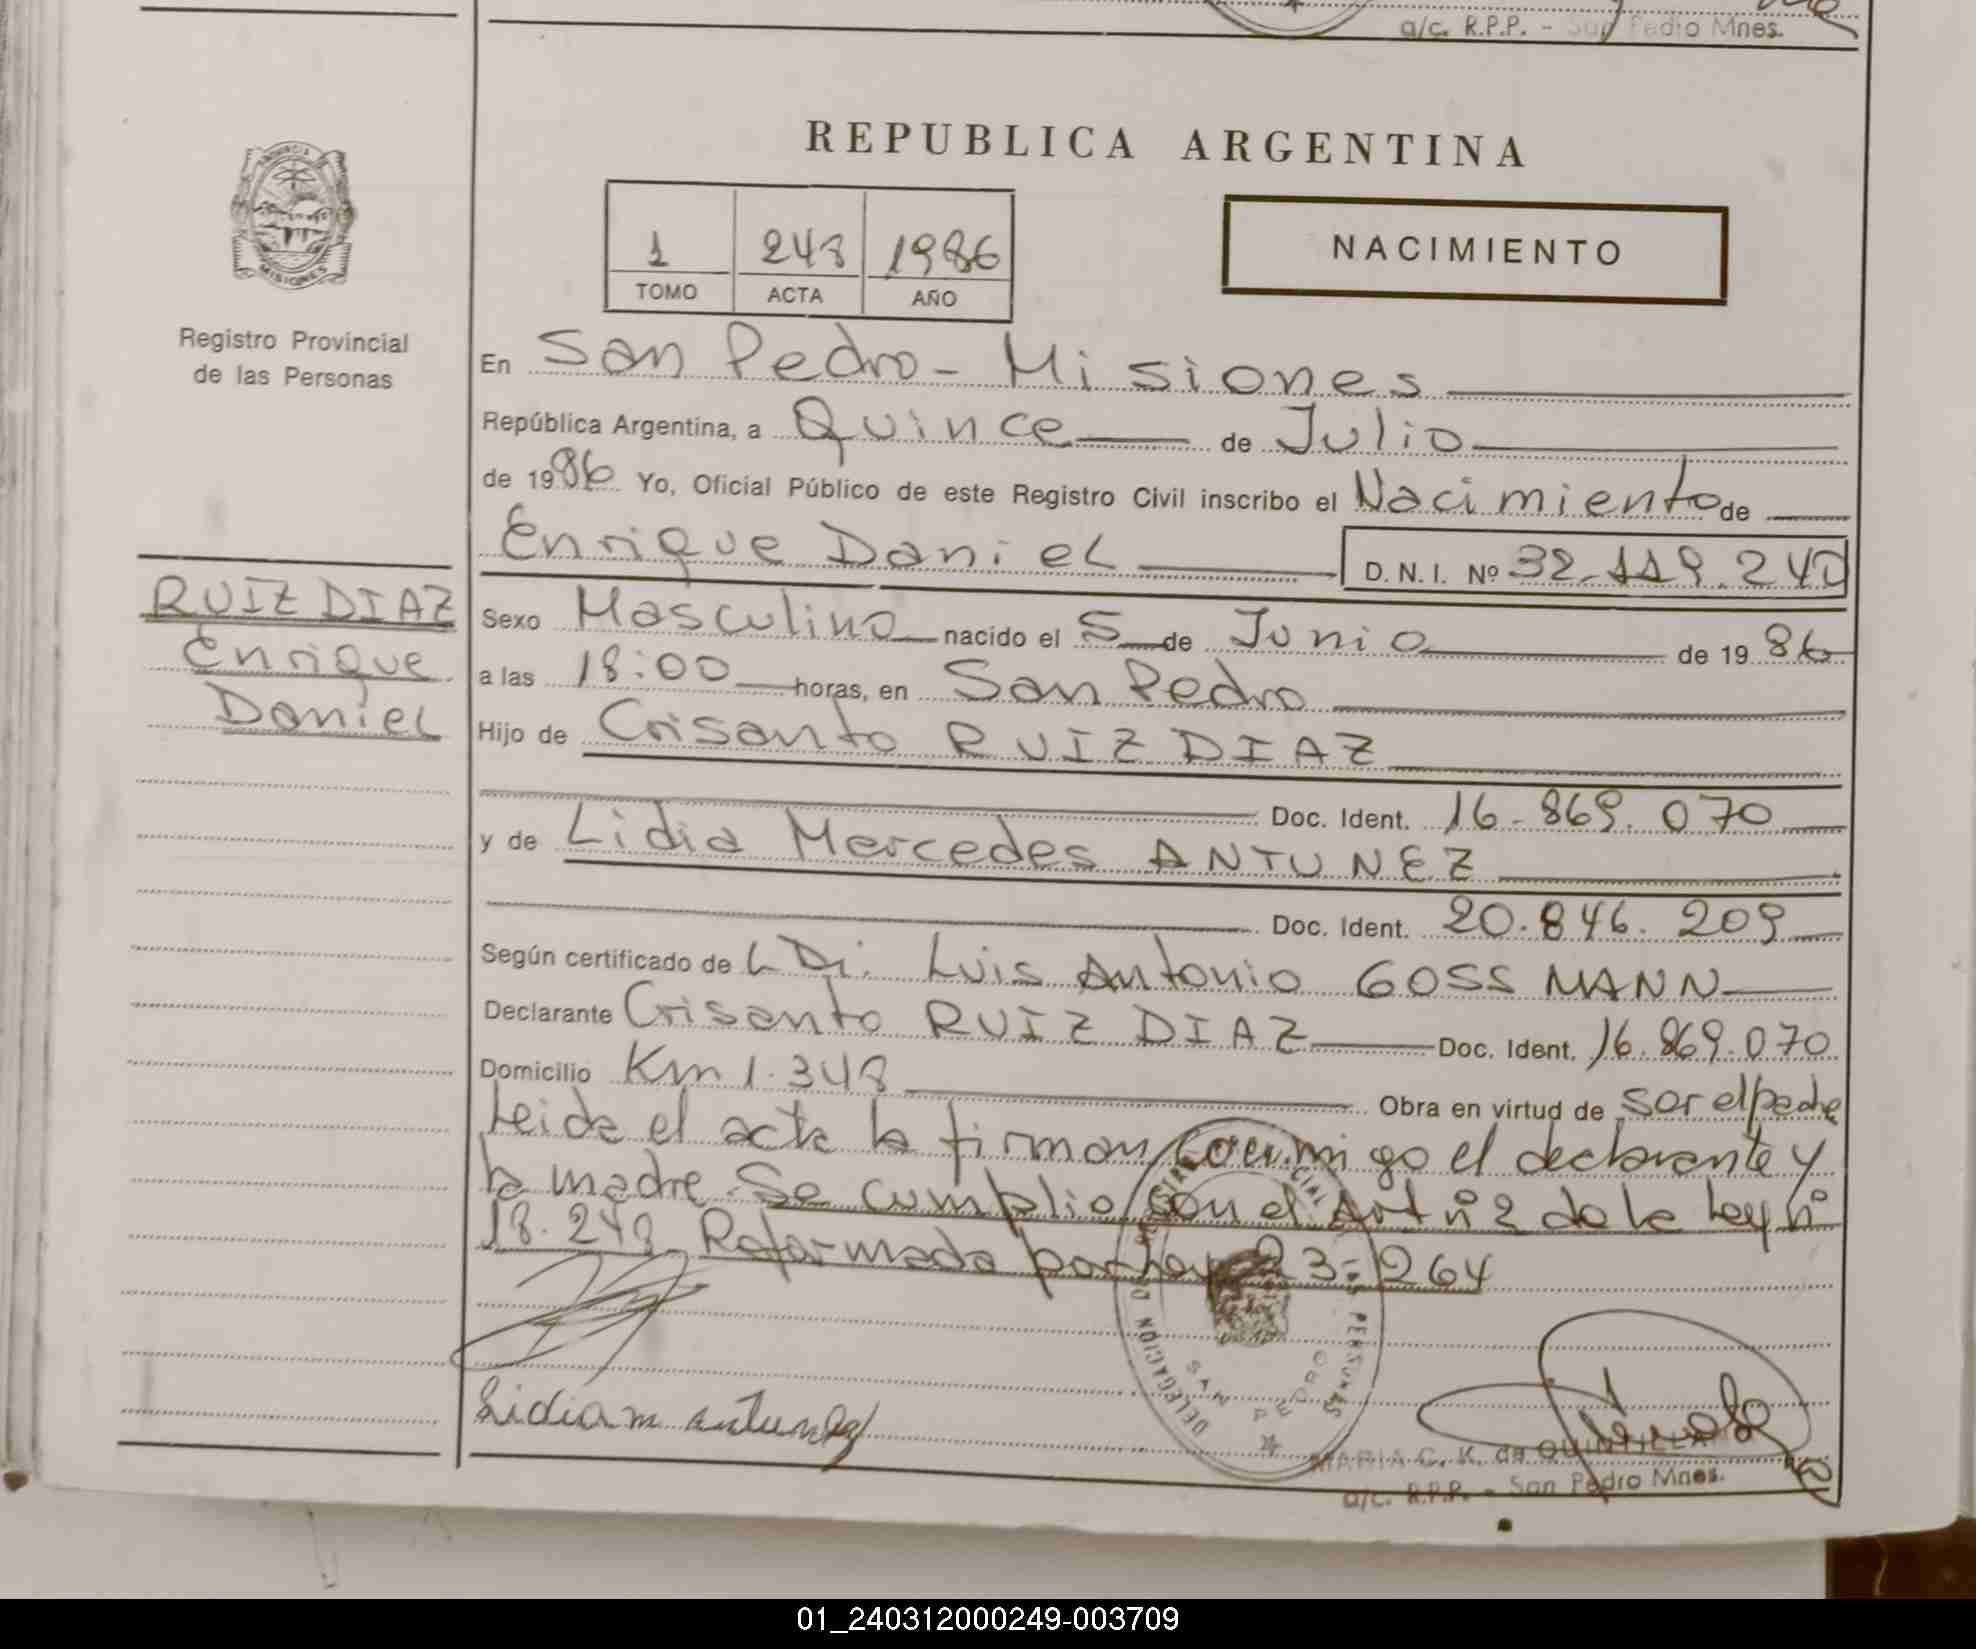 a/c. R.P.P. - San Pedro Mnes.
REPUBLICA ARGENTINA
PROVINCIA
MISIONES
1 243 1986
TOMO ACTA AÑO
NACIMIENTO
Registro Provincial
de las Personas
En San Pedro - Misiones
República Argentina, a Quince de Julio
de 1986 Yo, Oficial Público de este Registro Civil inscribo el Nacimiento de
Enrique Daniel D. N. I. Nº 32.119.240
RUIZ DIAZ
Enrique
Daniel
Sexo Masculino nacido el 5 de Junio de 1986
a las 18:00 horas, en San Pedro
Hijo de Crisanto RUIZ DIAZ
Doc. Ident. 16.869.070
y de Lidia Mercedes ANTUNEZ
Doc. Ident. 20.846.209
Según certificado de Luis Antonio GOSSMANN
Declarante Crisanto RUIZ DIAZ Doc. Ident. 16.869.070
Domicilio Km 1.348
Obra en virtud de ser el padre
Leida el acta la firman conmigo el declarante y
la madre. Se cumplio con el Art nº 2 de la Ley nº
18.248 Reformada por ley 23.264
DELEGACION PERSONAS
SAN PEDRO
Lidia m antunez
MARIA C. K. de QUINTILLA
a/c. R.P.P. - San Pedro Mnes.
01_240312000249-003709